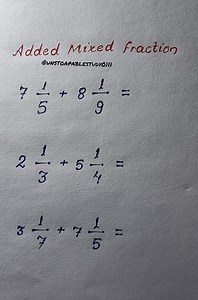 Added Mixed fraction
@UNSTOAPABLESTUDY0111
7 1/5 + 8 1/9 =
2 1/3 + 5 1/4 =
3 1/7 + 7 1/5 =